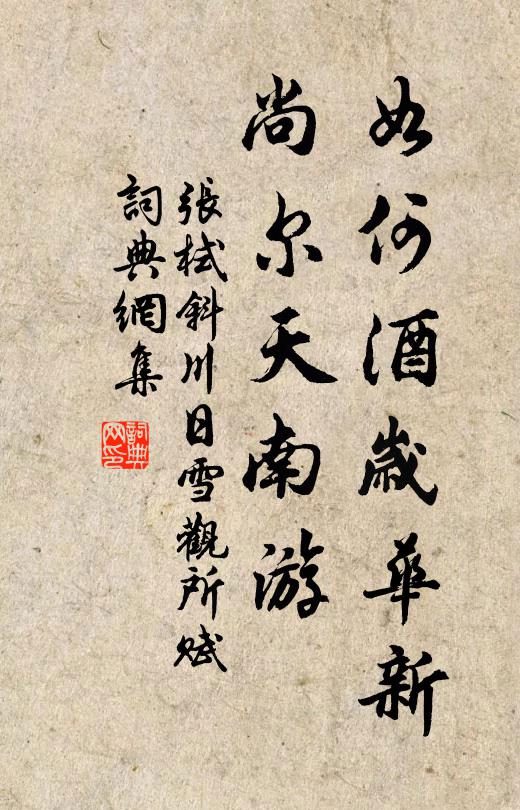 如何酒歲華新
尚尔天南游
張栻斜川日雪觀所賦
詞典網集
詞典网印